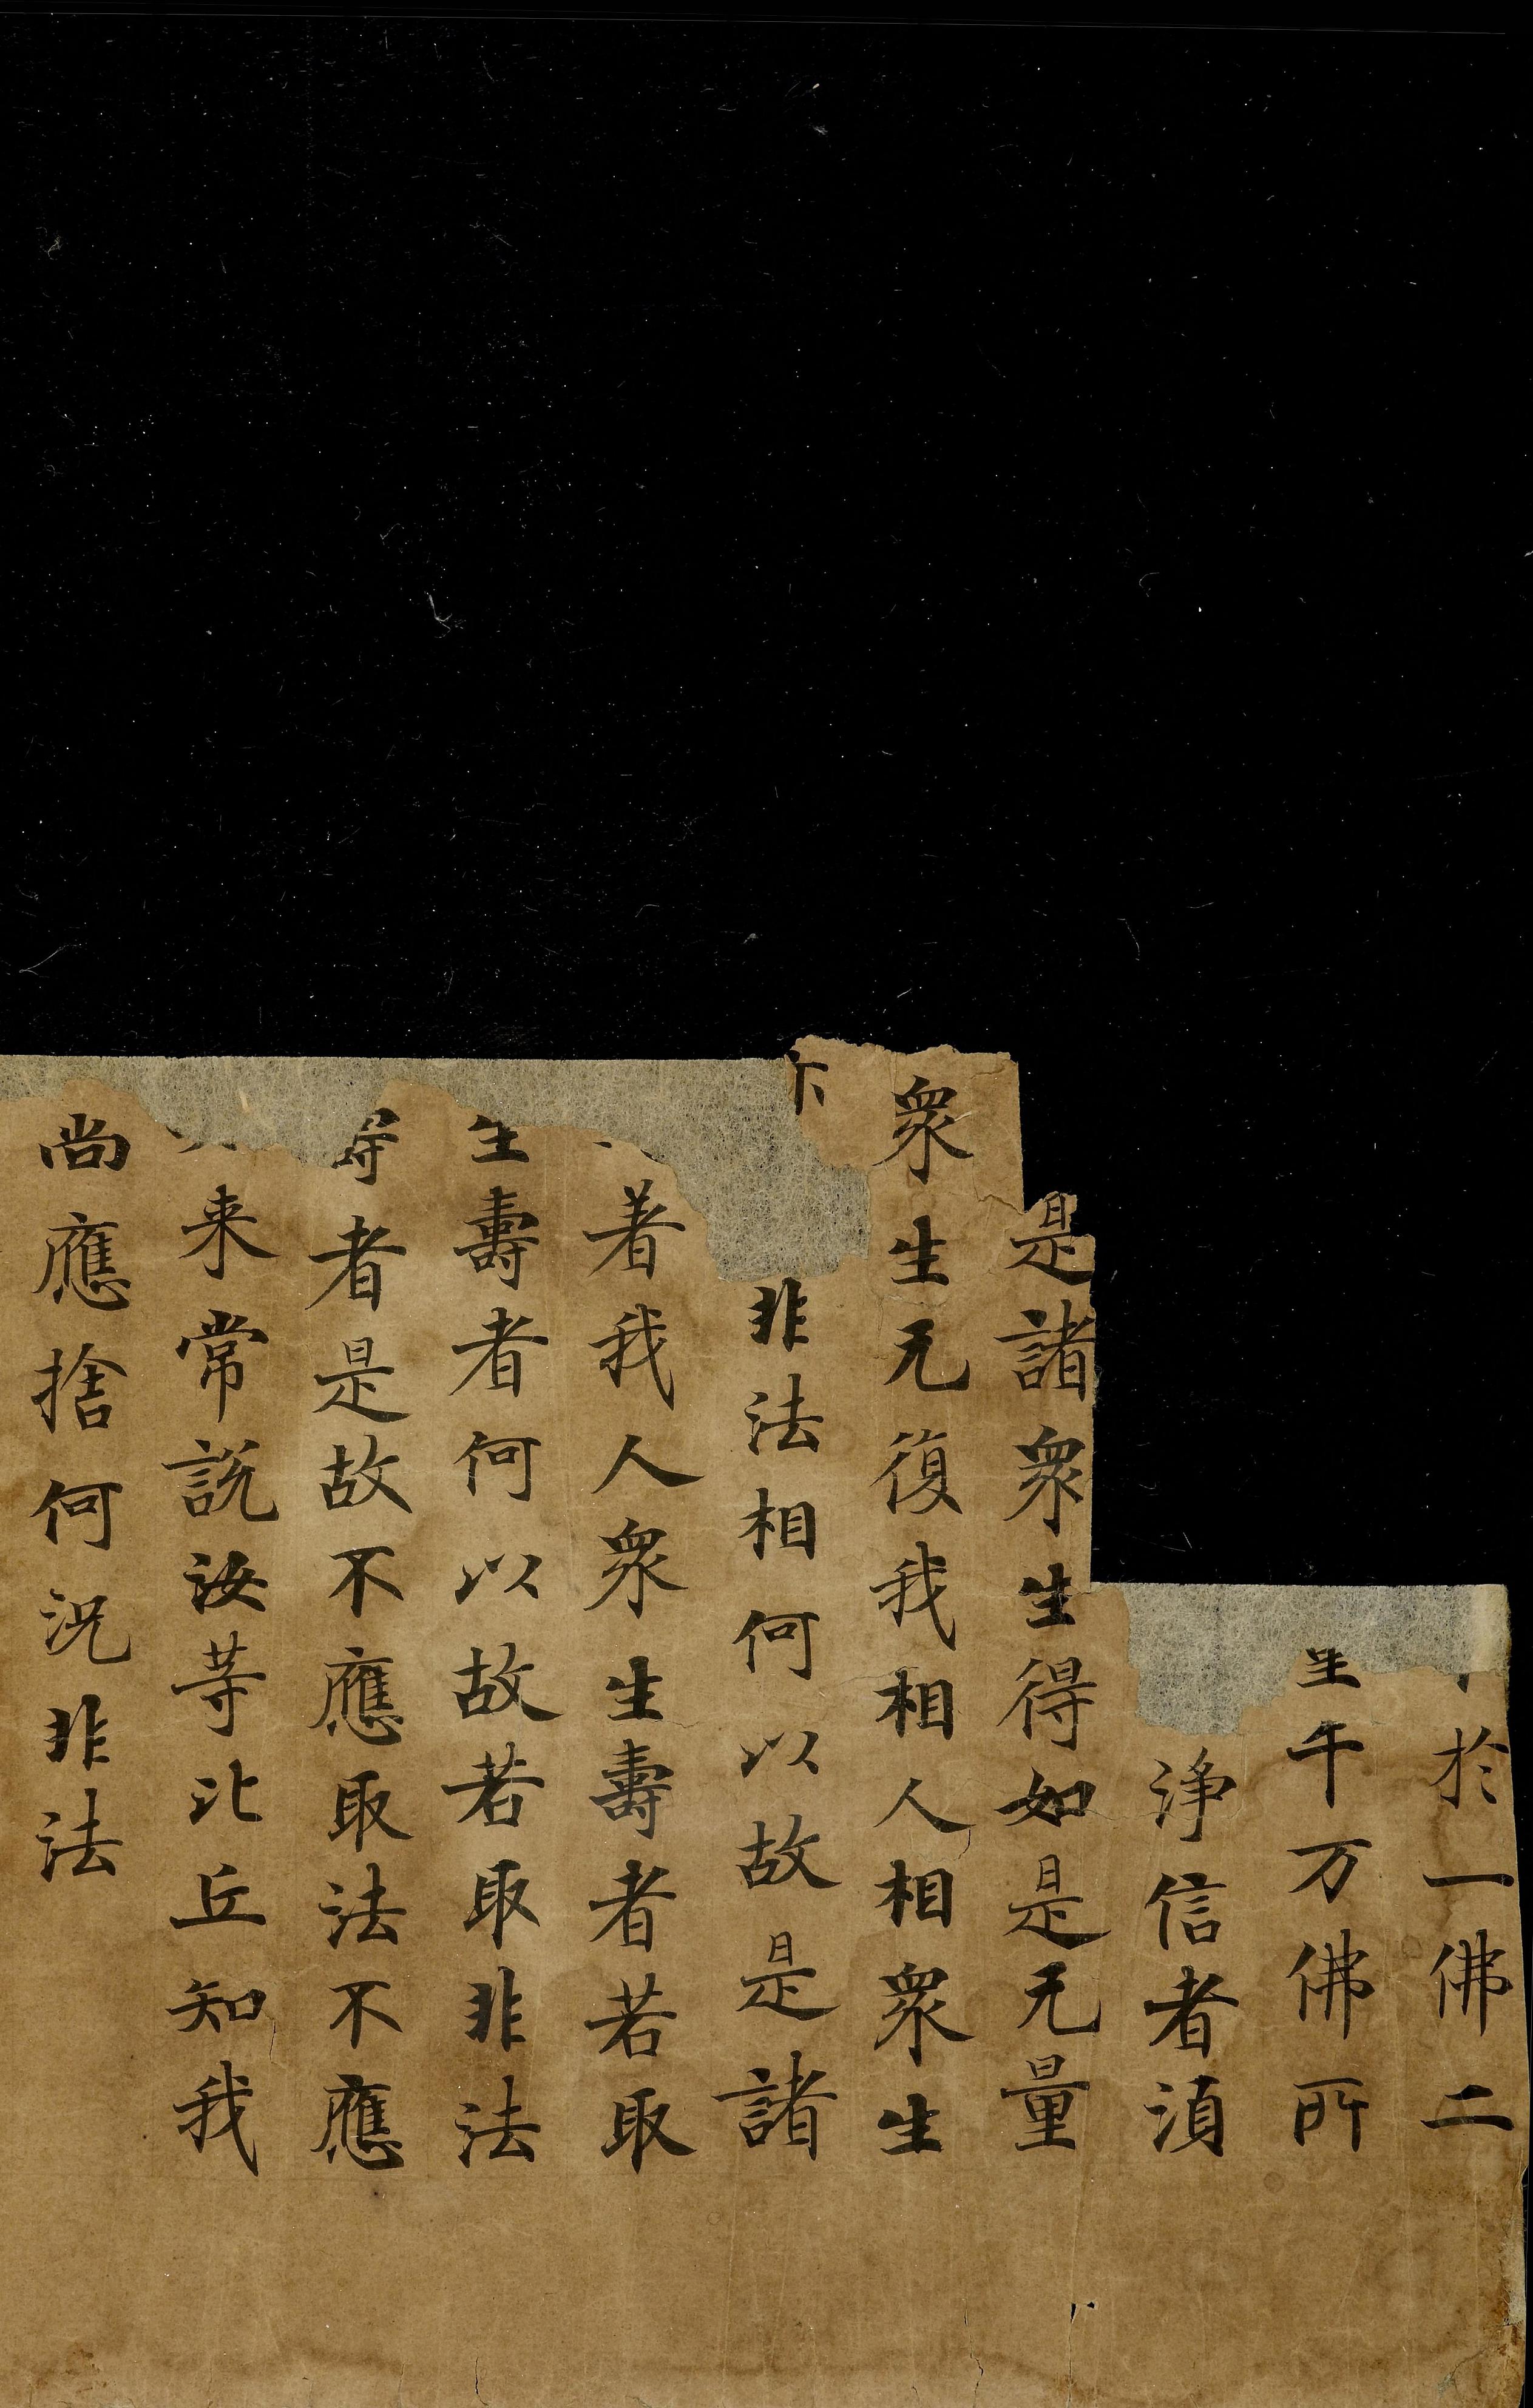 於一佛二
千万佛所
淨信者湏
是諸衆生得如是无量
衆生无復我相人相衆生
非法相何以故是諸
着我人衆生壽者若取
生壽者何以故若取非法
壽者是故不應取法不應
来常說汝等比丘知我
尚應捨何況非法